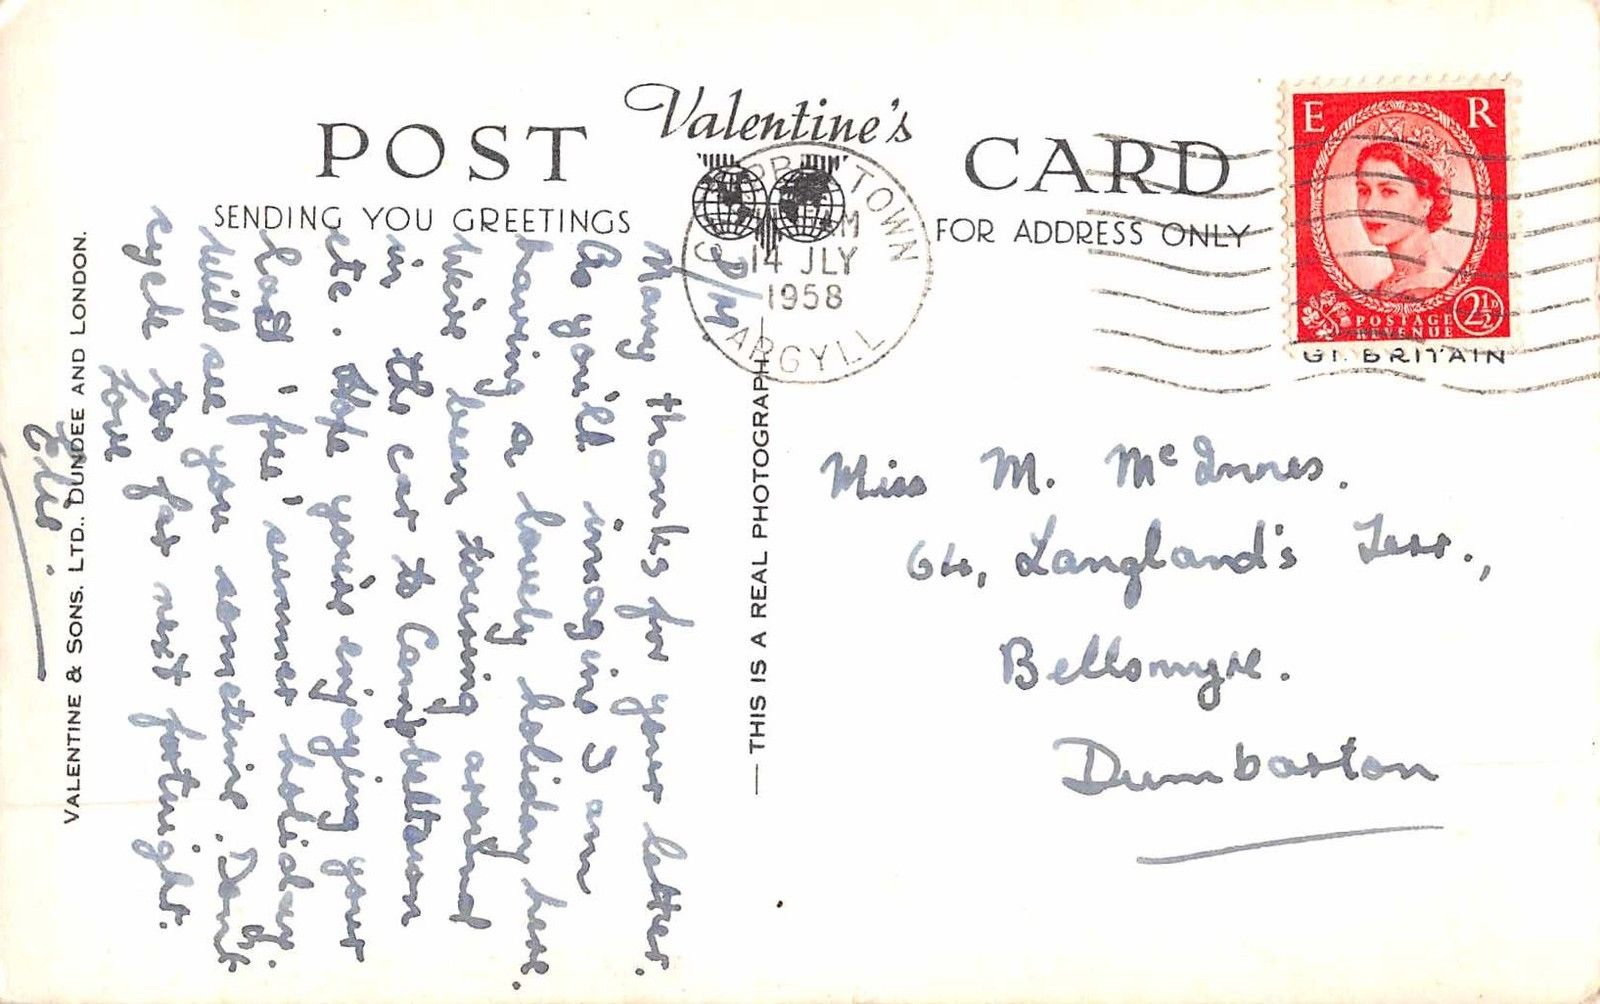 Valentine's
POST CARD
SENDING YOU GREETINGS
FOR ADDRESS ONLY
CAMPBELTOWN
AM
14 JLY
1958
ARGYLL
E R
POSTAGE
REVENUE
2½D
GT. BRITAIN
Many thanks for your letter.
As you'll imagine I am
having a lovely holiday here.
We've been touring around
in the car to Campbeltown
etc. Hope you're enjoying your
last 'free' summer holiday.
Will see you sometime. Don't
cycle too far next fortnight.
Love
THIS IS A REAL PHOTOGRAPH
VALENTINE & SONS. LTD., DUNDEE AND LONDON.
Miss M. McInnes.
64, Langland's Terr.,
Bellsmyre.
Dumbarton